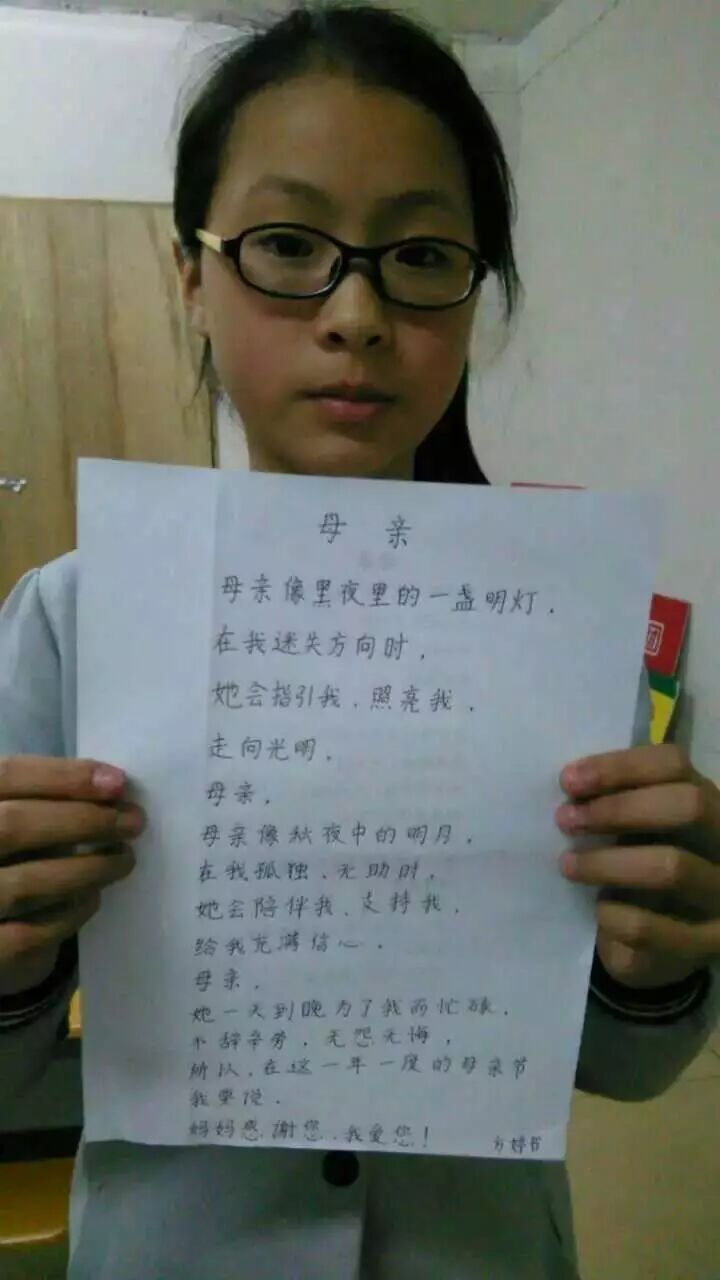 母亲
母亲像黑夜里的一盏明灯，
在我迷失方向时，
她会指引我、照亮我，
走向光明，
母亲，
母亲像秋夜中的明月，
在我孤独、无助时，
她会陪伴我、支持我，
给我充满信心，
母亲，
她一天到晚为了我而忙碌，
不辞辛劳，无怨无悔，
所以，在这一年一度的母亲节
我要说，
妈妈恩谢您，我爱您！
方婷书
团